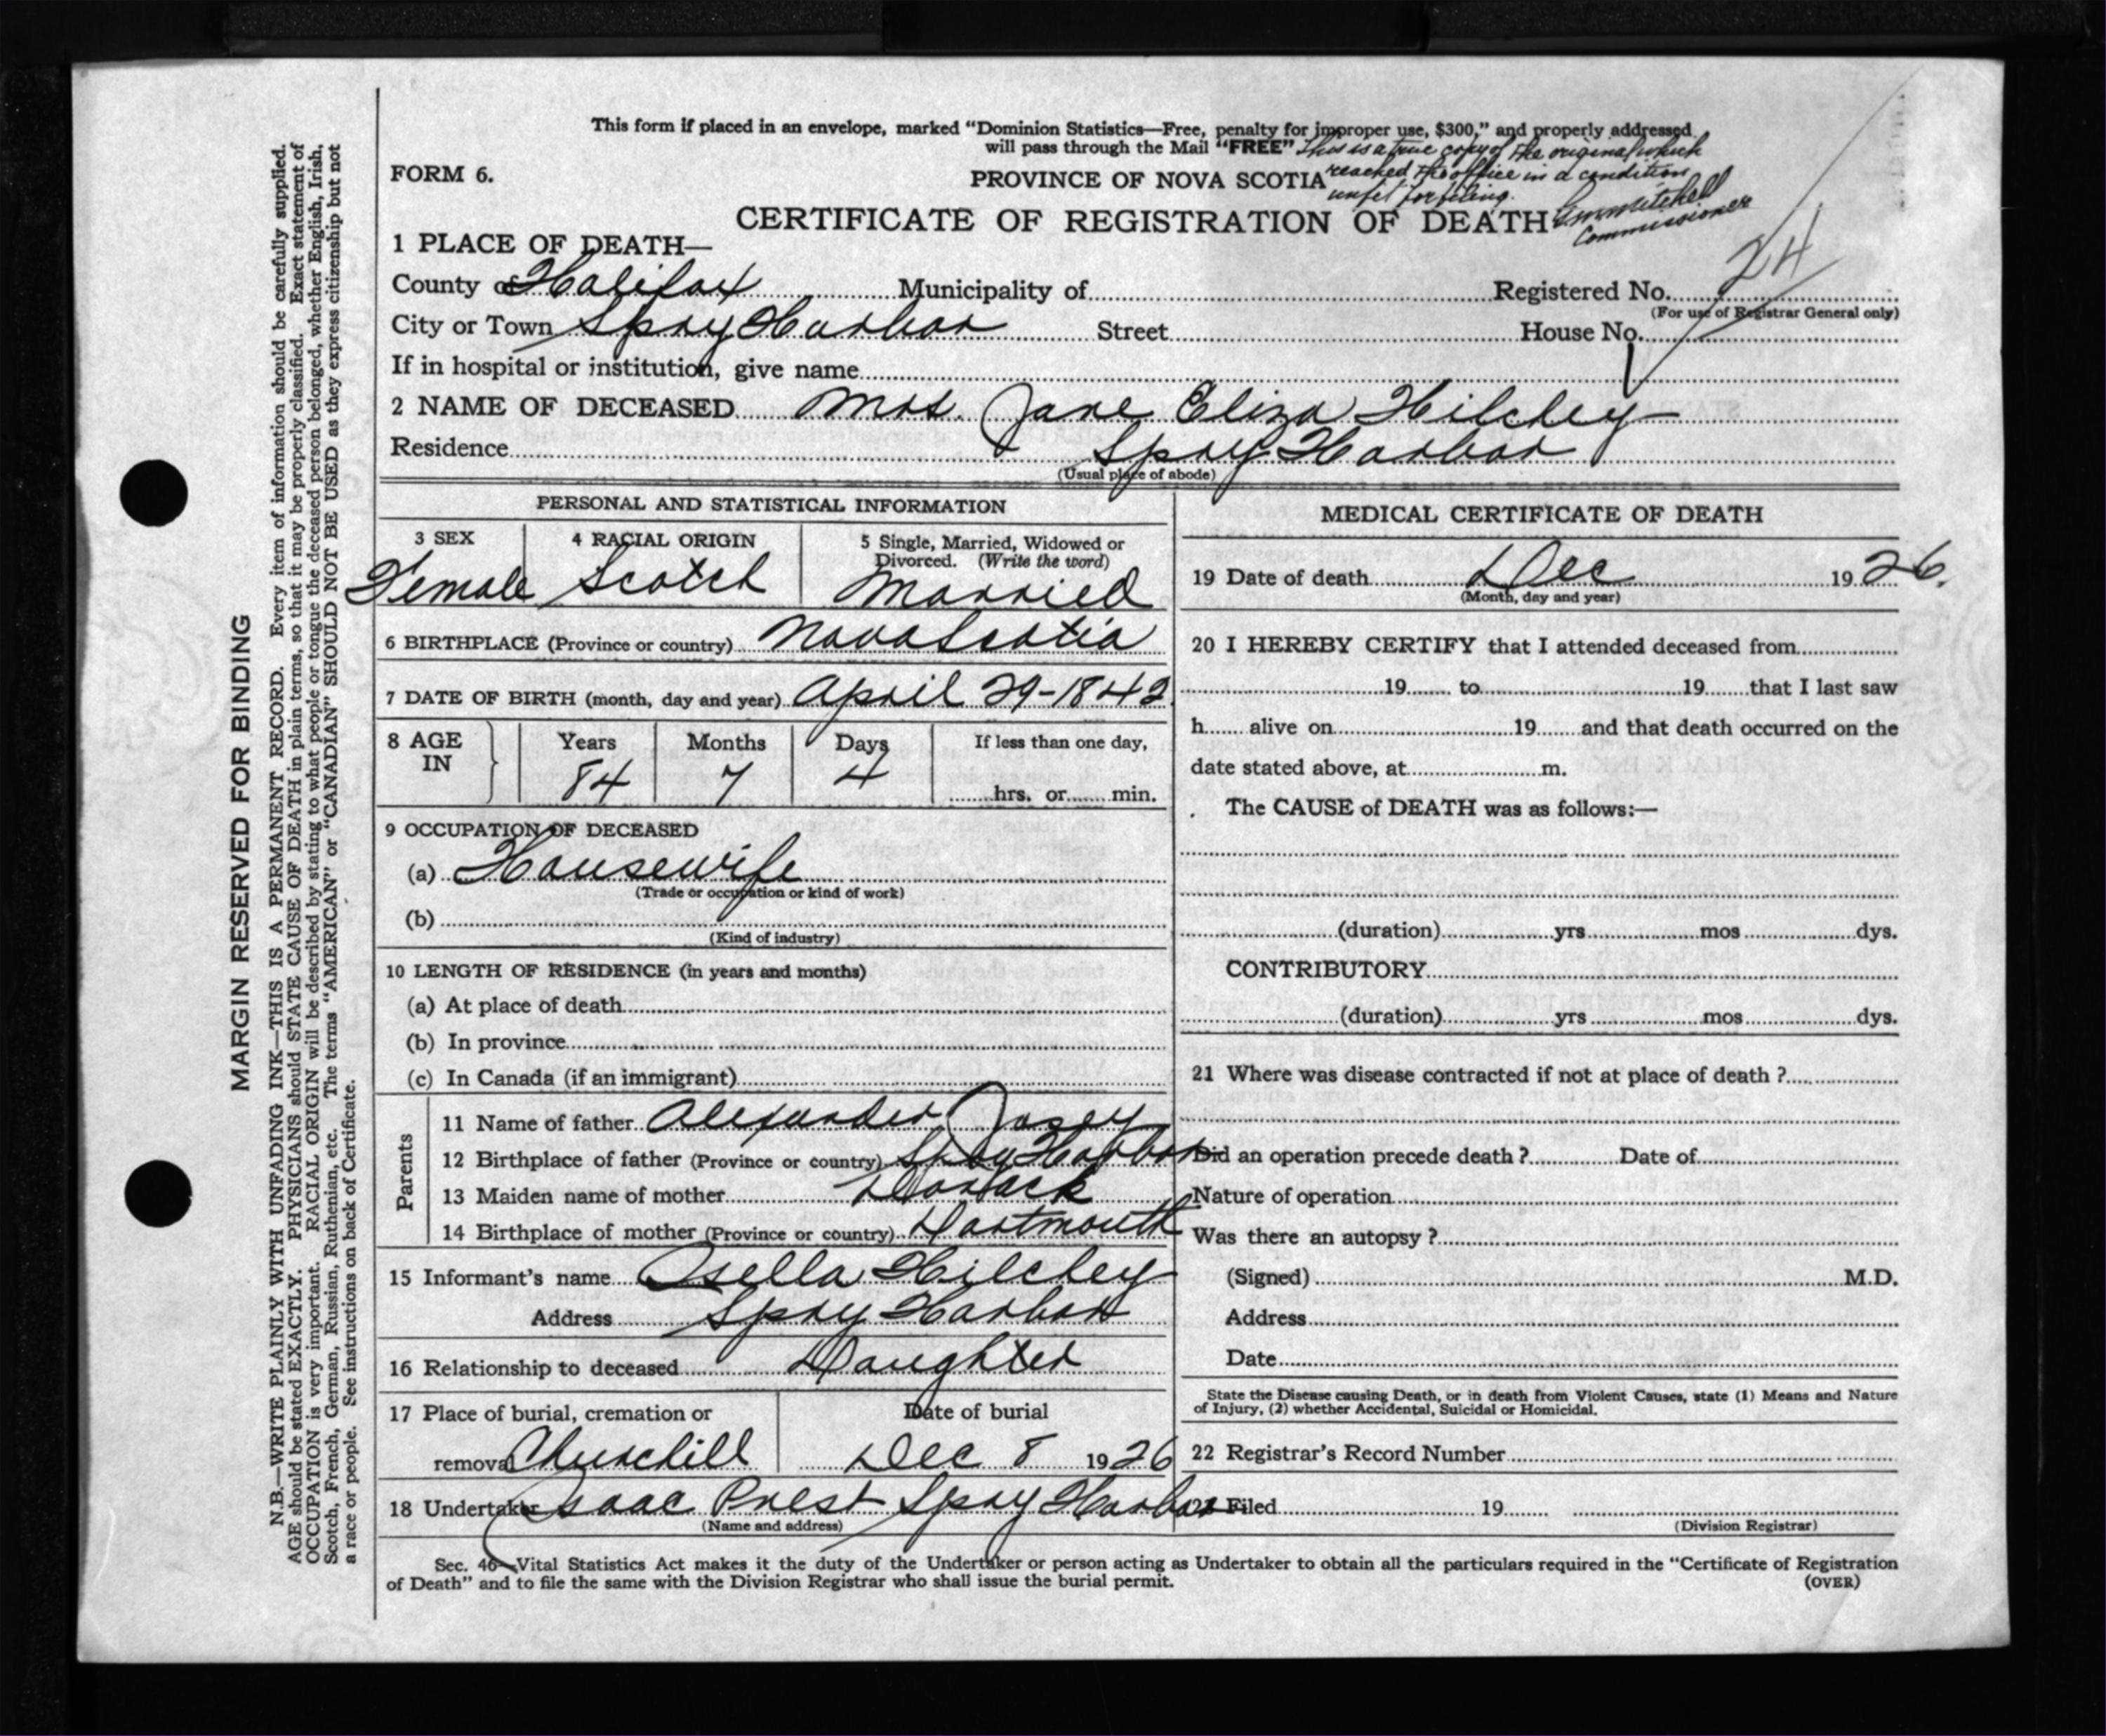 This form if placed in an envelope, marked “Dominion Statistics—Free, penalty for improper use, $300,” and properly addressed
will pass through the Mail “FREE” This is a true copy of the original which
FORM 6.
PROVINCE OF NOVA SCOTIA reached the office in a condition
unfit for filing.
CERTIFICATE OF REGISTRATION OF DEATH
Commissioner
1 PLACE OF DEATH—
24
County of Halifax Municipality of Registered No.
(For use of Registrar General only)
City or Town Spry Harbor Street House No.
If in hospital or institution, give name
2 NAME OF DECEASED Mrs. Jane Eliza Hilchey
Residence Spry Harbor
(Usual place of abode)
PERSONAL AND STATISTICAL INFORMATION
3 SEX 4 RACIAL ORIGIN 5 Single, Married, Widowed or
Divorced. (Write the word)
Female Scotch Married
6 BIRTHPLACE (Province or country) Nova Scotia
7 DATE OF BIRTH (month, day and year) April 29-1842
8 AGE IN Years Months Days If less than one day,
84 7 4
hrs. or min.
9 OCCUPATION OF DECEASED
(a) Housewife
(Trade or occupation or kind of work)
(b)
(Kind of industry)
10 LENGTH OF RESIDENCE (in years and months)
(a) At place of death
(b) In province
(c) In Canada (if an immigrant)
Parents
11 Name of father Alexander Josey
12 Birthplace of father (Province or country) Spry Harbor
13 Maiden name of mother
14 Birthplace of mother (Province or country) Dartmouth
15 Informant's name Osella Hilchey
Address Spry Harbor
16 Relationship to deceased Daughter
17 Place of burial, cremation or Date of burial
removal Churchill Dec 8 1926
18 Undertaker Isaac Prest Spry Harbor
(Name and address)
MEDICAL CERTIFICATE OF DEATH
19 Date of death Dec 1926.
(Month, day and year)
20 I HEREBY CERTIFY that I attended deceased from
19 to 19 that I last saw
h alive on 19 and that death occurred on the
date stated above, at m.
The CAUSE of DEATH was as follows:—
(duration) yrs mos dys.
CONTRIBUTORY
(duration) yrs mos dys.
21 Where was disease contracted if not at place of death ?
Did an operation precede death ? Date of
Nature of operation
Was there an autopsy ?
(Signed) M.D.
Address
Date
State the Disease causing Death, or in death from Violent Causes, state (1) Means and Nature
of Injury, (2) whether Accidental, Suicidal or Homicidal.
22 Registrar's Record Number
Filed 19
(Division Registrar)
Sec. 46—Vital Statistics Act makes it the duty of the Undertaker or person acting as Undertaker to obtain all the particulars required in the “Certificate of Registration
of Death” and to file the same with the Division Registrar who shall issue the burial permit.
(OVER)
MARGIN RESERVED FOR BINDING
N.B.—WRITE PLAINLY WITH UNFADING INK—THIS IS A PERMANENT RECORD. Every item of information should be carefully supplied.
AGE should be stated EXACTLY. PHYSICIANS should STATE CAUSE OF DEATH in plain terms, so that it may be properly classified. Exact statement of
OCCUPATION is very important. RACIAL ORIGIN will be described by stating to what people or tongue the deceased person belonged, whether English, Irish,
Scotch, French, German, Russian, Ruthenian, etc. The terms “AMERICAN” or “CANADIAN” SHOULD NOT BE USED as they express citizenship but not
a race or people. See instructions on back of Certificate.